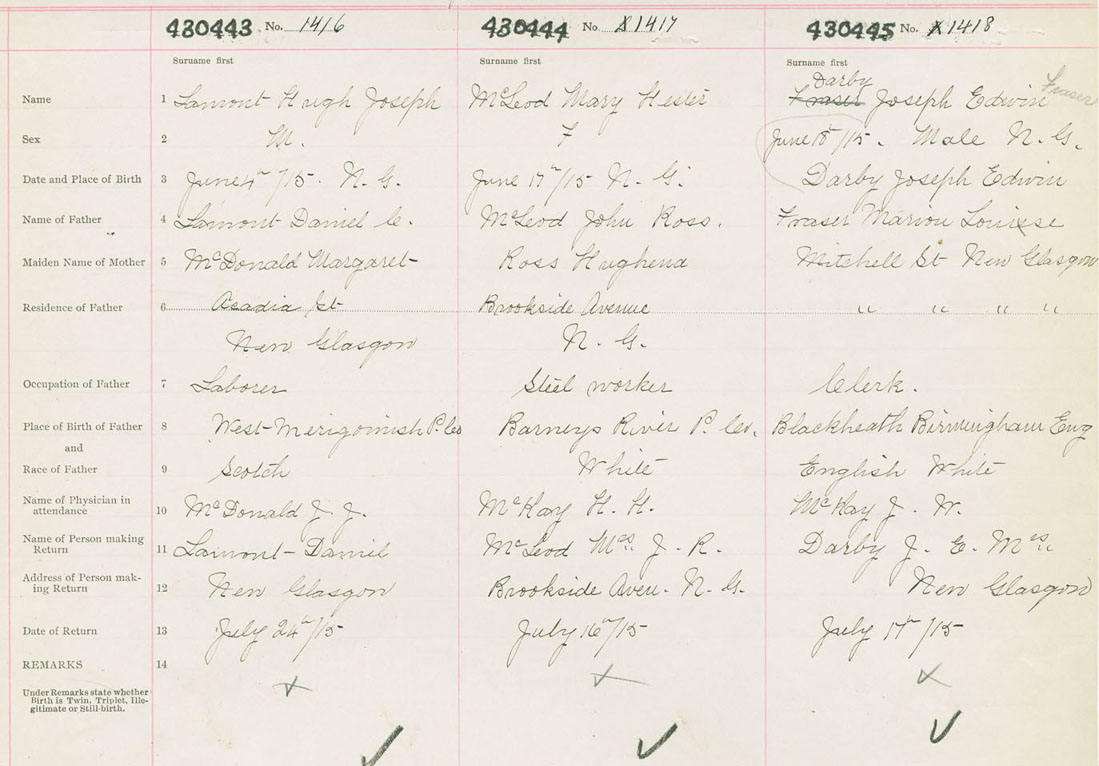 430443 No. 1416 430444 No. 1417 430445 No. 1418
Surname first Surname first Surname first
Darby
Name 1 Lamont Hugh Joseph McLeod Mary Hester Fraser Joseph Edwin Fraser
Sex 2 M. F June 18th/15. Male N. G.
Date and Place of Birth 3 June 4th/15. N. G. June 17th/15 N. G. Darby Joseph Edwin
Name of Father 4 Lamont Daniel C. McLeod John Ross. Fraser Marion Louise
Maiden Name of Mother 5 McDonald Margaret Ross Hughena Mitchell St New Glasgow
Residence of Father 6 Acadia St Brookside Avenue " " " "
New Glasgow N. G.
Occupation of Father 7 Laborer Steel worker Clerk.
Place of Birth of Father 8 West Merigomish P. Co Barneys River P. Co. Blackheath Birmingham Eng
and
Race of Father 9 Scotch White English White
Name of Physician in
attendance 10 McDonald J. J. McKay H. H. McKay J. W.
Name of Person making
Return 11 Lamont-Daniel McLeod Mrs. J. R. Darby J. E. Mrs.
Address of Person mak-
ing Return 12 New Glasgow Brookside Aven. N. G. New Glasgow
Date of Return 13 July 24th/15 July 16th/15 July 17th/15
REMARKS 14
Under Remarks state whether
Birth is Twin, Triplet, Ille-
gitimate or Still-birth.